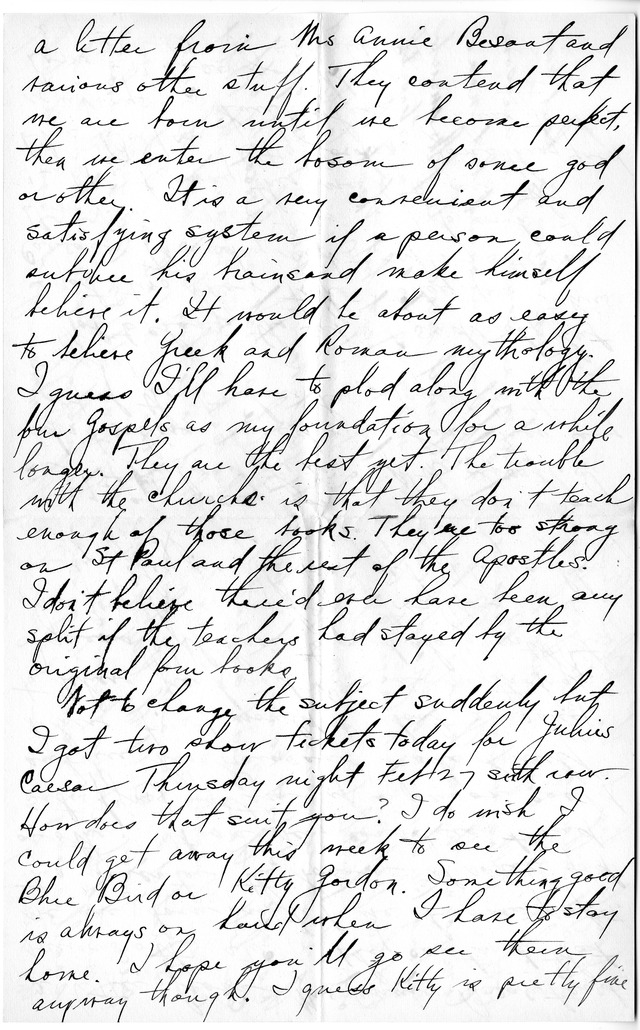 a letter from Mrs Annie Besant and
various other stuff. They contend that
we are born until we become perfect,
then we enter the bosom of some god
or other. It is a very convenient and
satisfying system if a person could
subdue his brains and make himself
believe it. It would be about as easy
to believe Greek and Roman mythology.
I guess I'll have to plod along with the
four Gospels as my foundation for a while
longer. They are the best yet. The trouble
with the churches is that they don't teach
enough of those books. They're too strong
on St Paul and the rest of the Apostles.
I don't believe there'd ever have been any
split if the teachers had stayed by the
original four books.
Not to change the subject suddenly but
I got two show tickets today for Julius
Caesar Thursday night Feb 27 sixth row.
How does that suit you? I do wish I
could get away this week to see the
Blue Bird or Kitty Gordon. Something good
is always on hand when I have to stay
home. I hope you'll go see them
anyway though. I guess Kitty is pretty fine